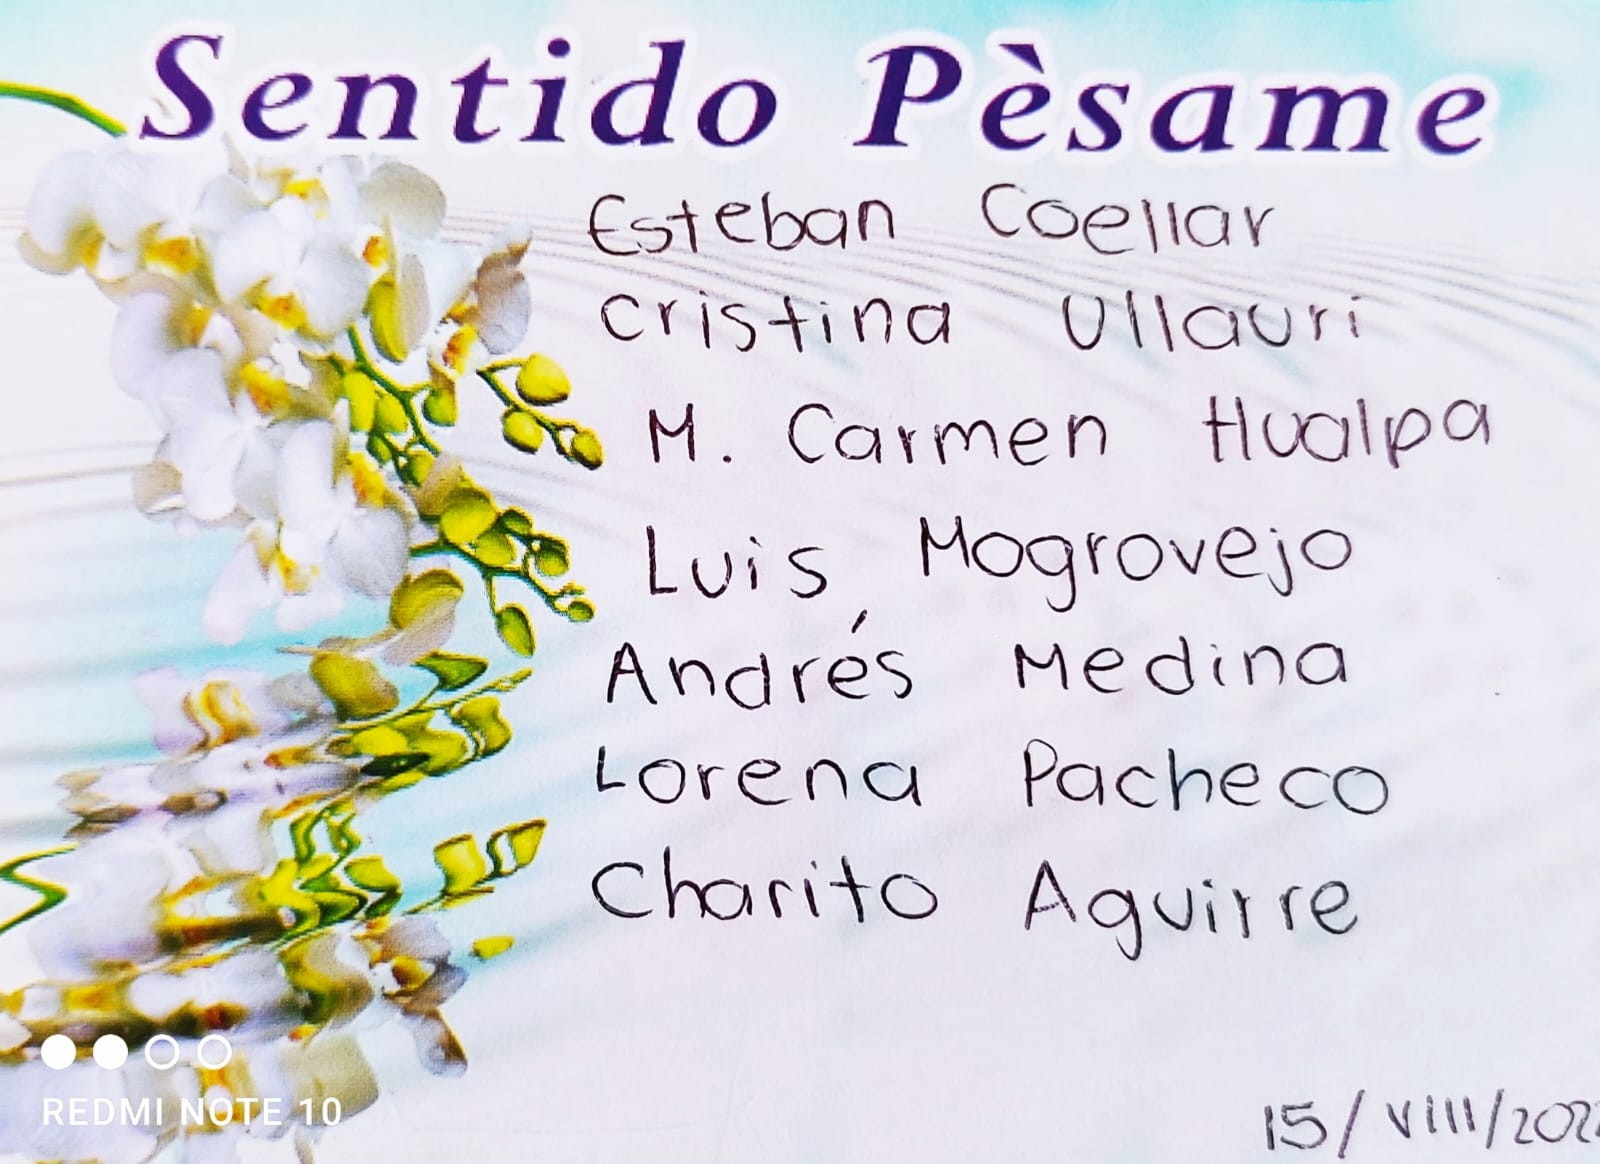 Sentido Pèsame
Esteban Coellar
Cristina Ullauri
M. Carmen Hualpa
Luis Mogrovejo
Andrés Medina
Lorena Pacheco
Charito Aguirre
REDMI NOTE 10
15/VIII/202